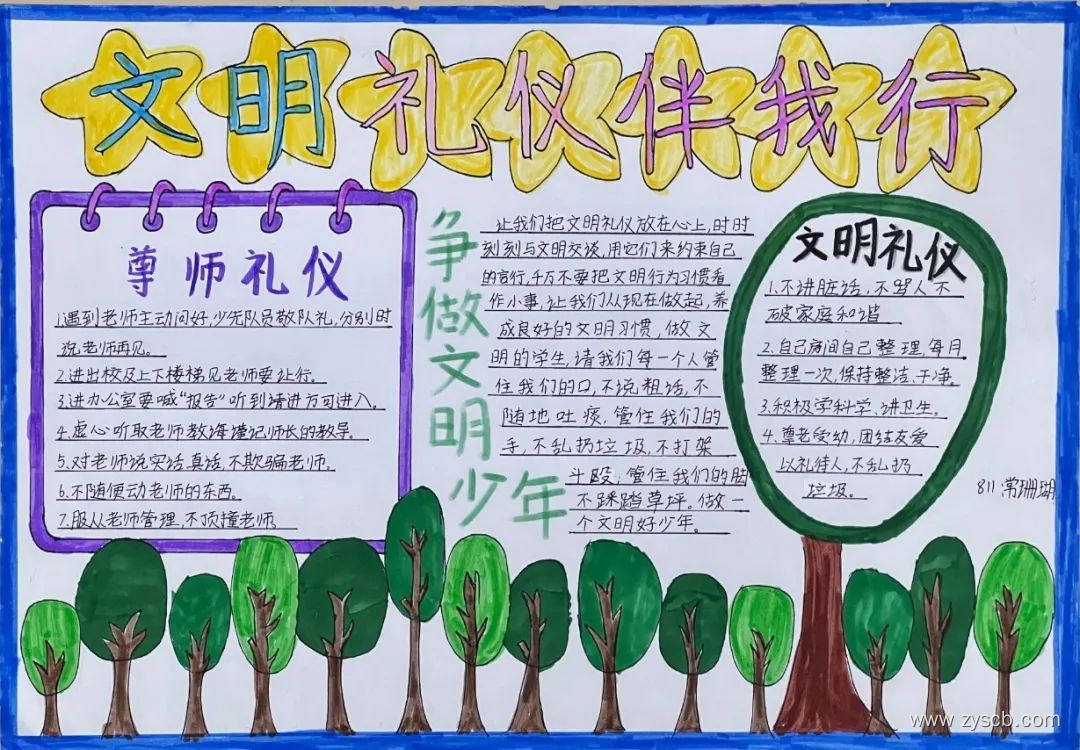 文明礼仪伴我行
尊师礼仪
1.遇到老师主动问好,少先队员敬队礼,分别时
说老师再见。
2.进出校及上下楼梯见老师要让行。
3.进办公室要喊“报告”听到请进方可进入。
4.虚心听取老师教诲谨记师长的教导。
5.对老师说实话,真话,不欺骗老师。
6.不随便动老师的东西。
7.服从老师管理,不顶撞老师。
争做文明少年
让我们把文明礼仪放在心上,时时
刻刻与文明交谈,用它们来约束自己
的言行,千万不要把文明行为习惯看
作小事,让我们从现在做起,养
成良好的文明习惯,做文
明的学生,请我们每一个人管
住我们的口,不说粗话,不
随地吐痰,管住我们的
手,不乱扔垃圾,不打架
斗殴,管住我们的脚
不踩踏草坪。做一
个文明好少年。
文明礼仪
1.不讲脏话,不骂人不
破家庭和谐
2.自己房间自己整理,每月
整理一次,保持整洁、干净。
3.积极学科学、讲卫生。
4.尊老爱幼,团结友爱
以礼待人,不乱扔
垃圾。
811常珊瑚
www.zyscb.com